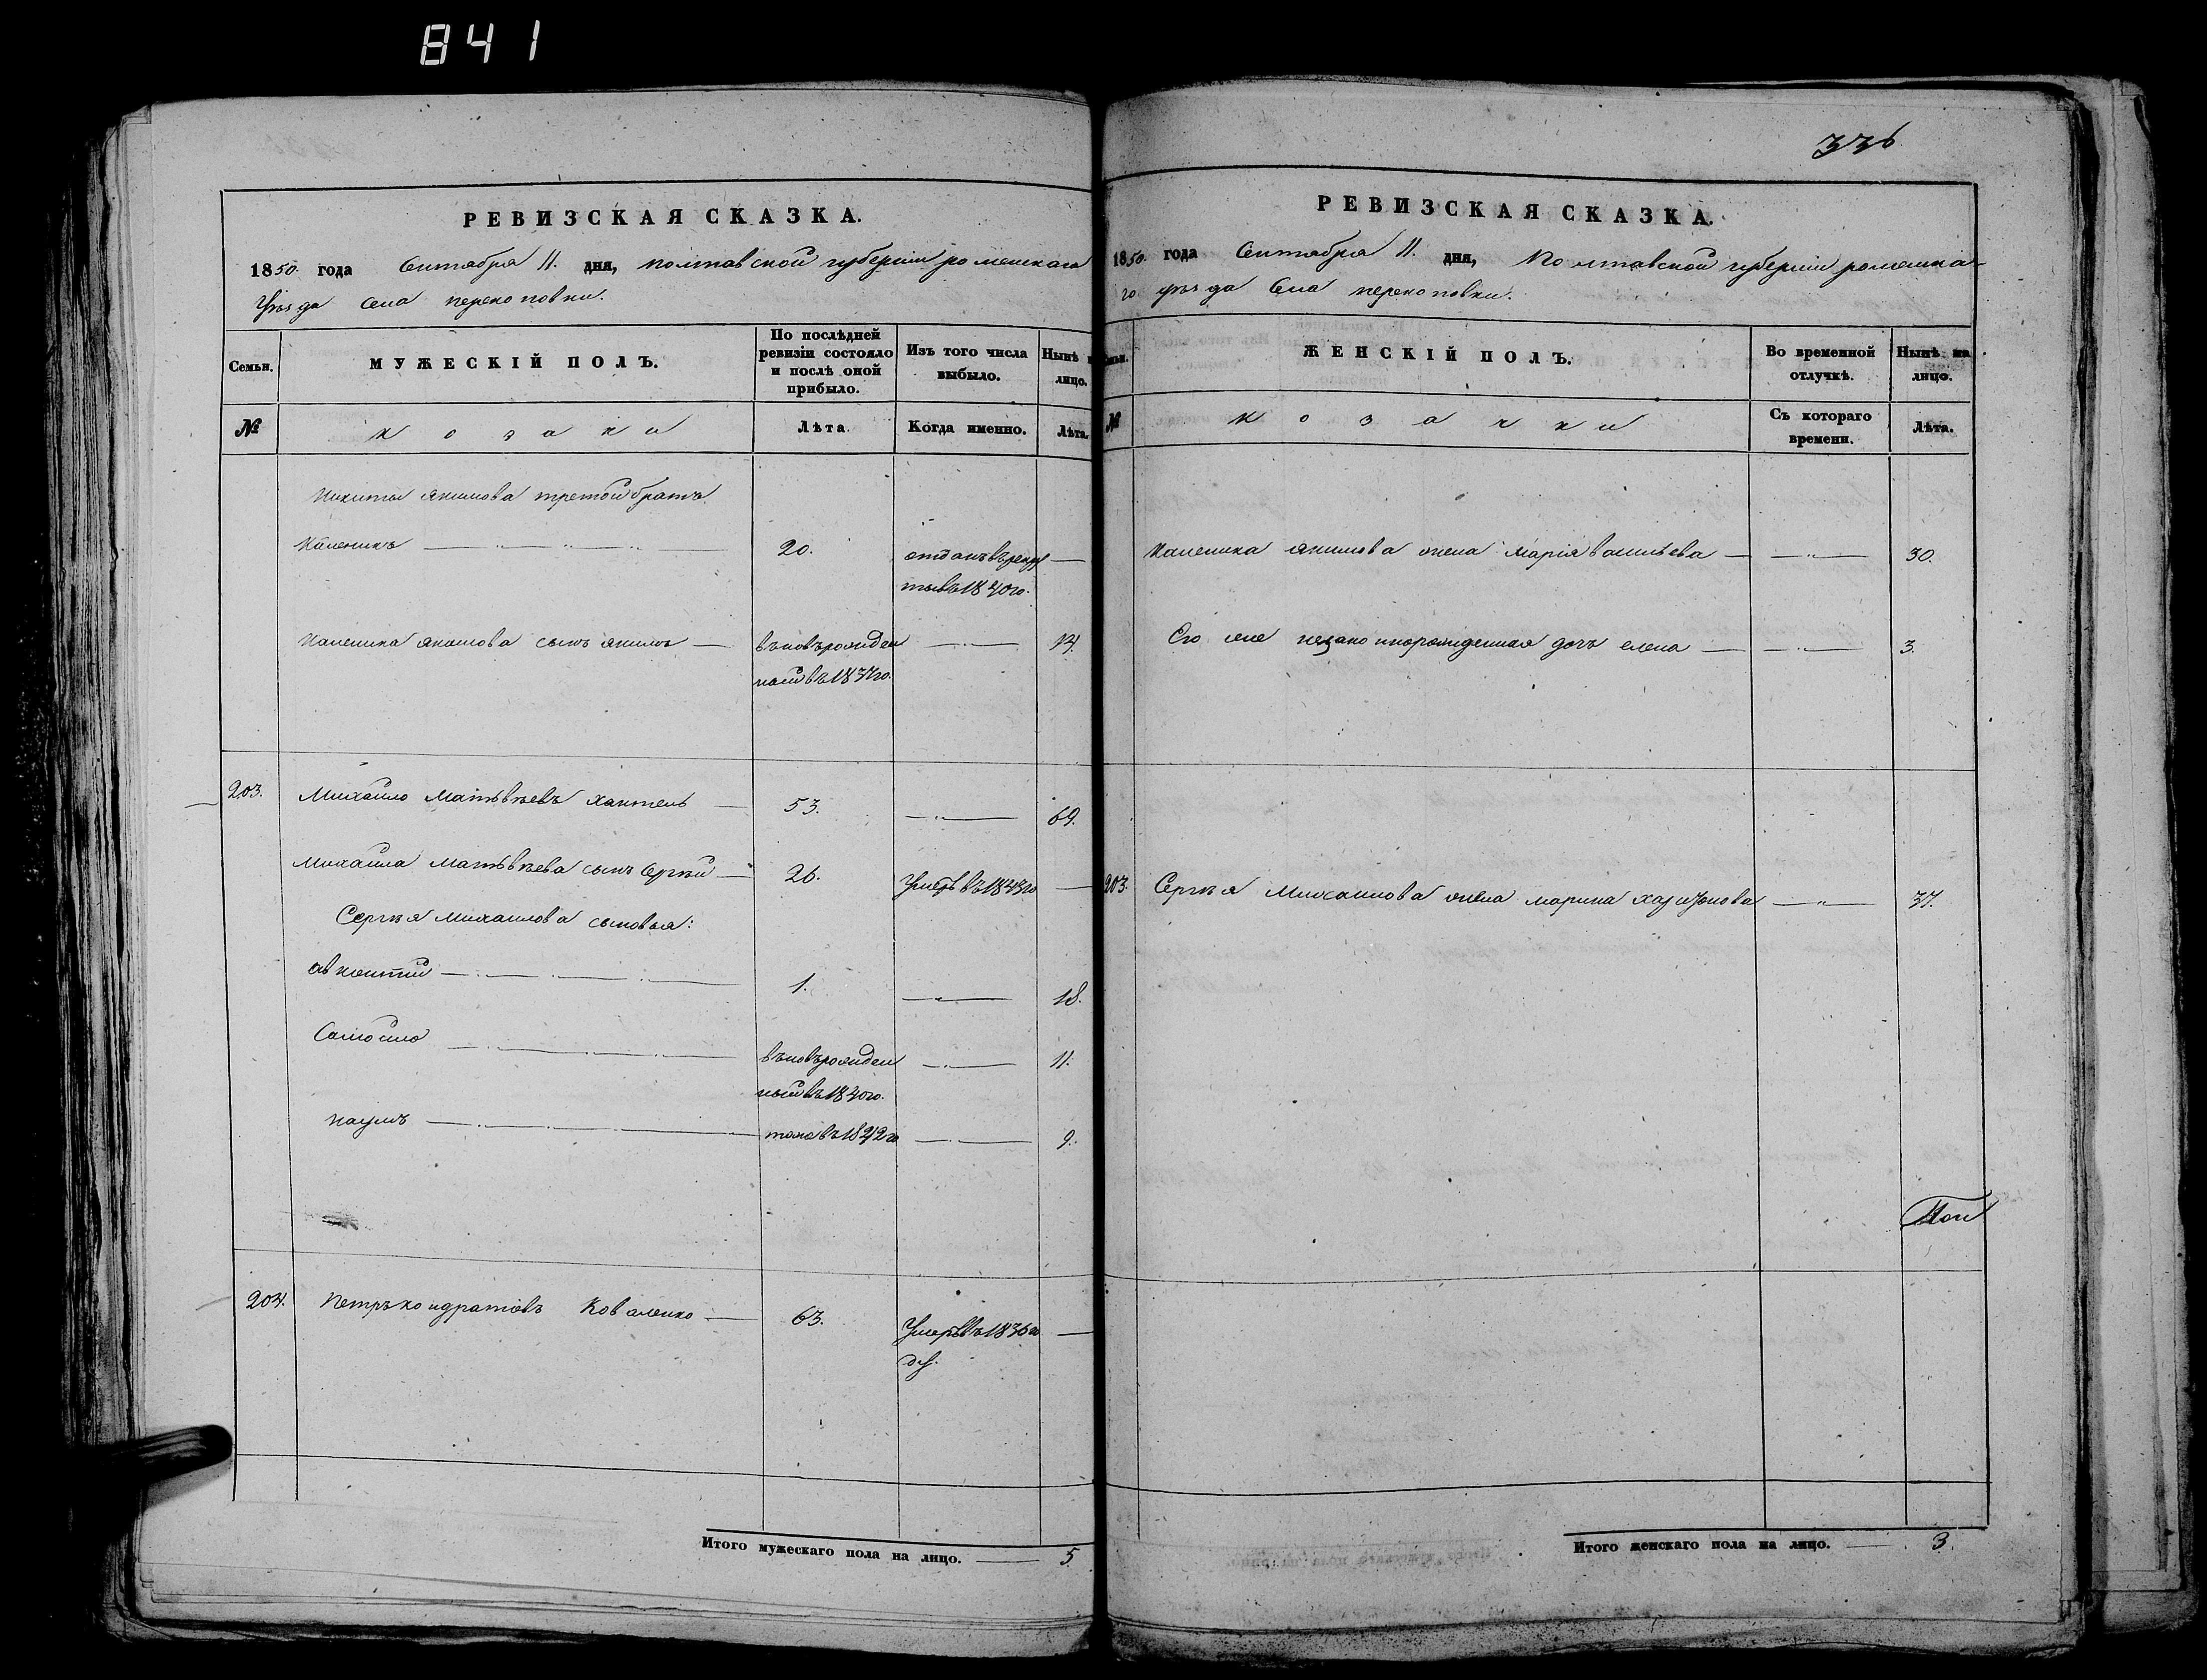 841
РЕВИЗСКАЯ СКАЗКА.
1850. года Сентября 11. дня, полтавской губерніи роменскаго
Уѣзда села перекоповки.
Семьи.
МУЖЕСКІЙ ПОЛЪ.
По послѣдней
ревизіи состояло
и послѣ оной
прибыло.
Изъ того числа
выбыло.
Нынѣ
лицо.
№
козаки
Лѣта.
Когда именно.
Лѣта.
Никиты якимова третой братъ
Каленикъ 20. отданъ въ рекру
ты въ 1840 го.
Каленика якимова сынъ якимъ въновърожден 14.
ной въ 1837 го.
203. Михайло Матвѣевъ хантель 53. 69.
Михайла Матвѣева сынъ Сергѣй 26. Умеръ въ 1843 го
Сергѣя Михайлова сыновья:
авксентий 1. 18.
Самойло въновърожден 11.
ный въ 1840 го.
наумъ тоже въ 1842 го 9.
204. Петръ кондратовъ Коваленко 63. Умеръ въ 1836 го
Итого мужескаго пола на лицо. 5
336
РЕВИЗСКАЯ СКАЗКА.
1850. года Сентября 11. дня, Полтавской губерніи роменска-
го уѣзда Села перекоповки.
ЖЕНСКІЙ ПОЛЪ.
Во временной
отлучкѣ.
Нынѣ на
лицо.
№
козачки
Съ котораго
времени.
Лѣта.
Каленика якимова жена марія васильева 30.
Его же незаконнорожденная дочь елена 3.
203. Сергѣя Михайлова жена марина харитонова 37.
Итого женскаго пола на лицо. 3.